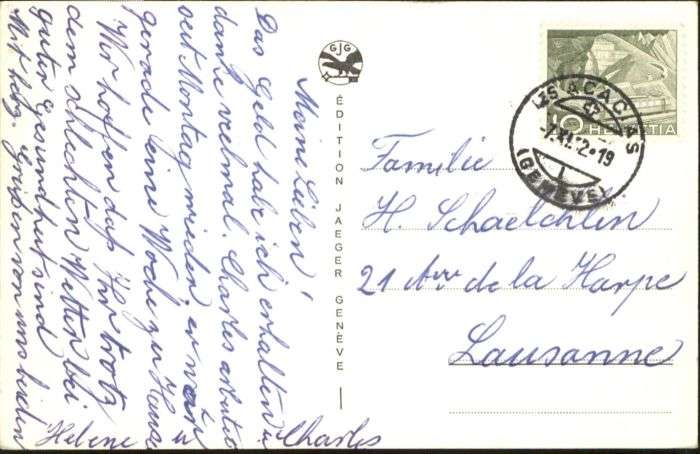 Meine Lieben!
Das Geld habe ich erhalten u
danke velmal. Charles arbeitet
seit Montag wieder, er war
gerade eine Woche zu Hause
Wir hoffen daß Ihr trotz
dem schlechten Wetter bei
guter Gesundheit sind
Mit herz. Grüßen von uns beiden
Helene u Charles
GJG
ÉDITION JAEGER GENÈVE
10 HELVETIA
LES ACACIAS
(GENÈVE)
Familie
H. Schaelchlin
21 Ave de la Harpe
Lausanne